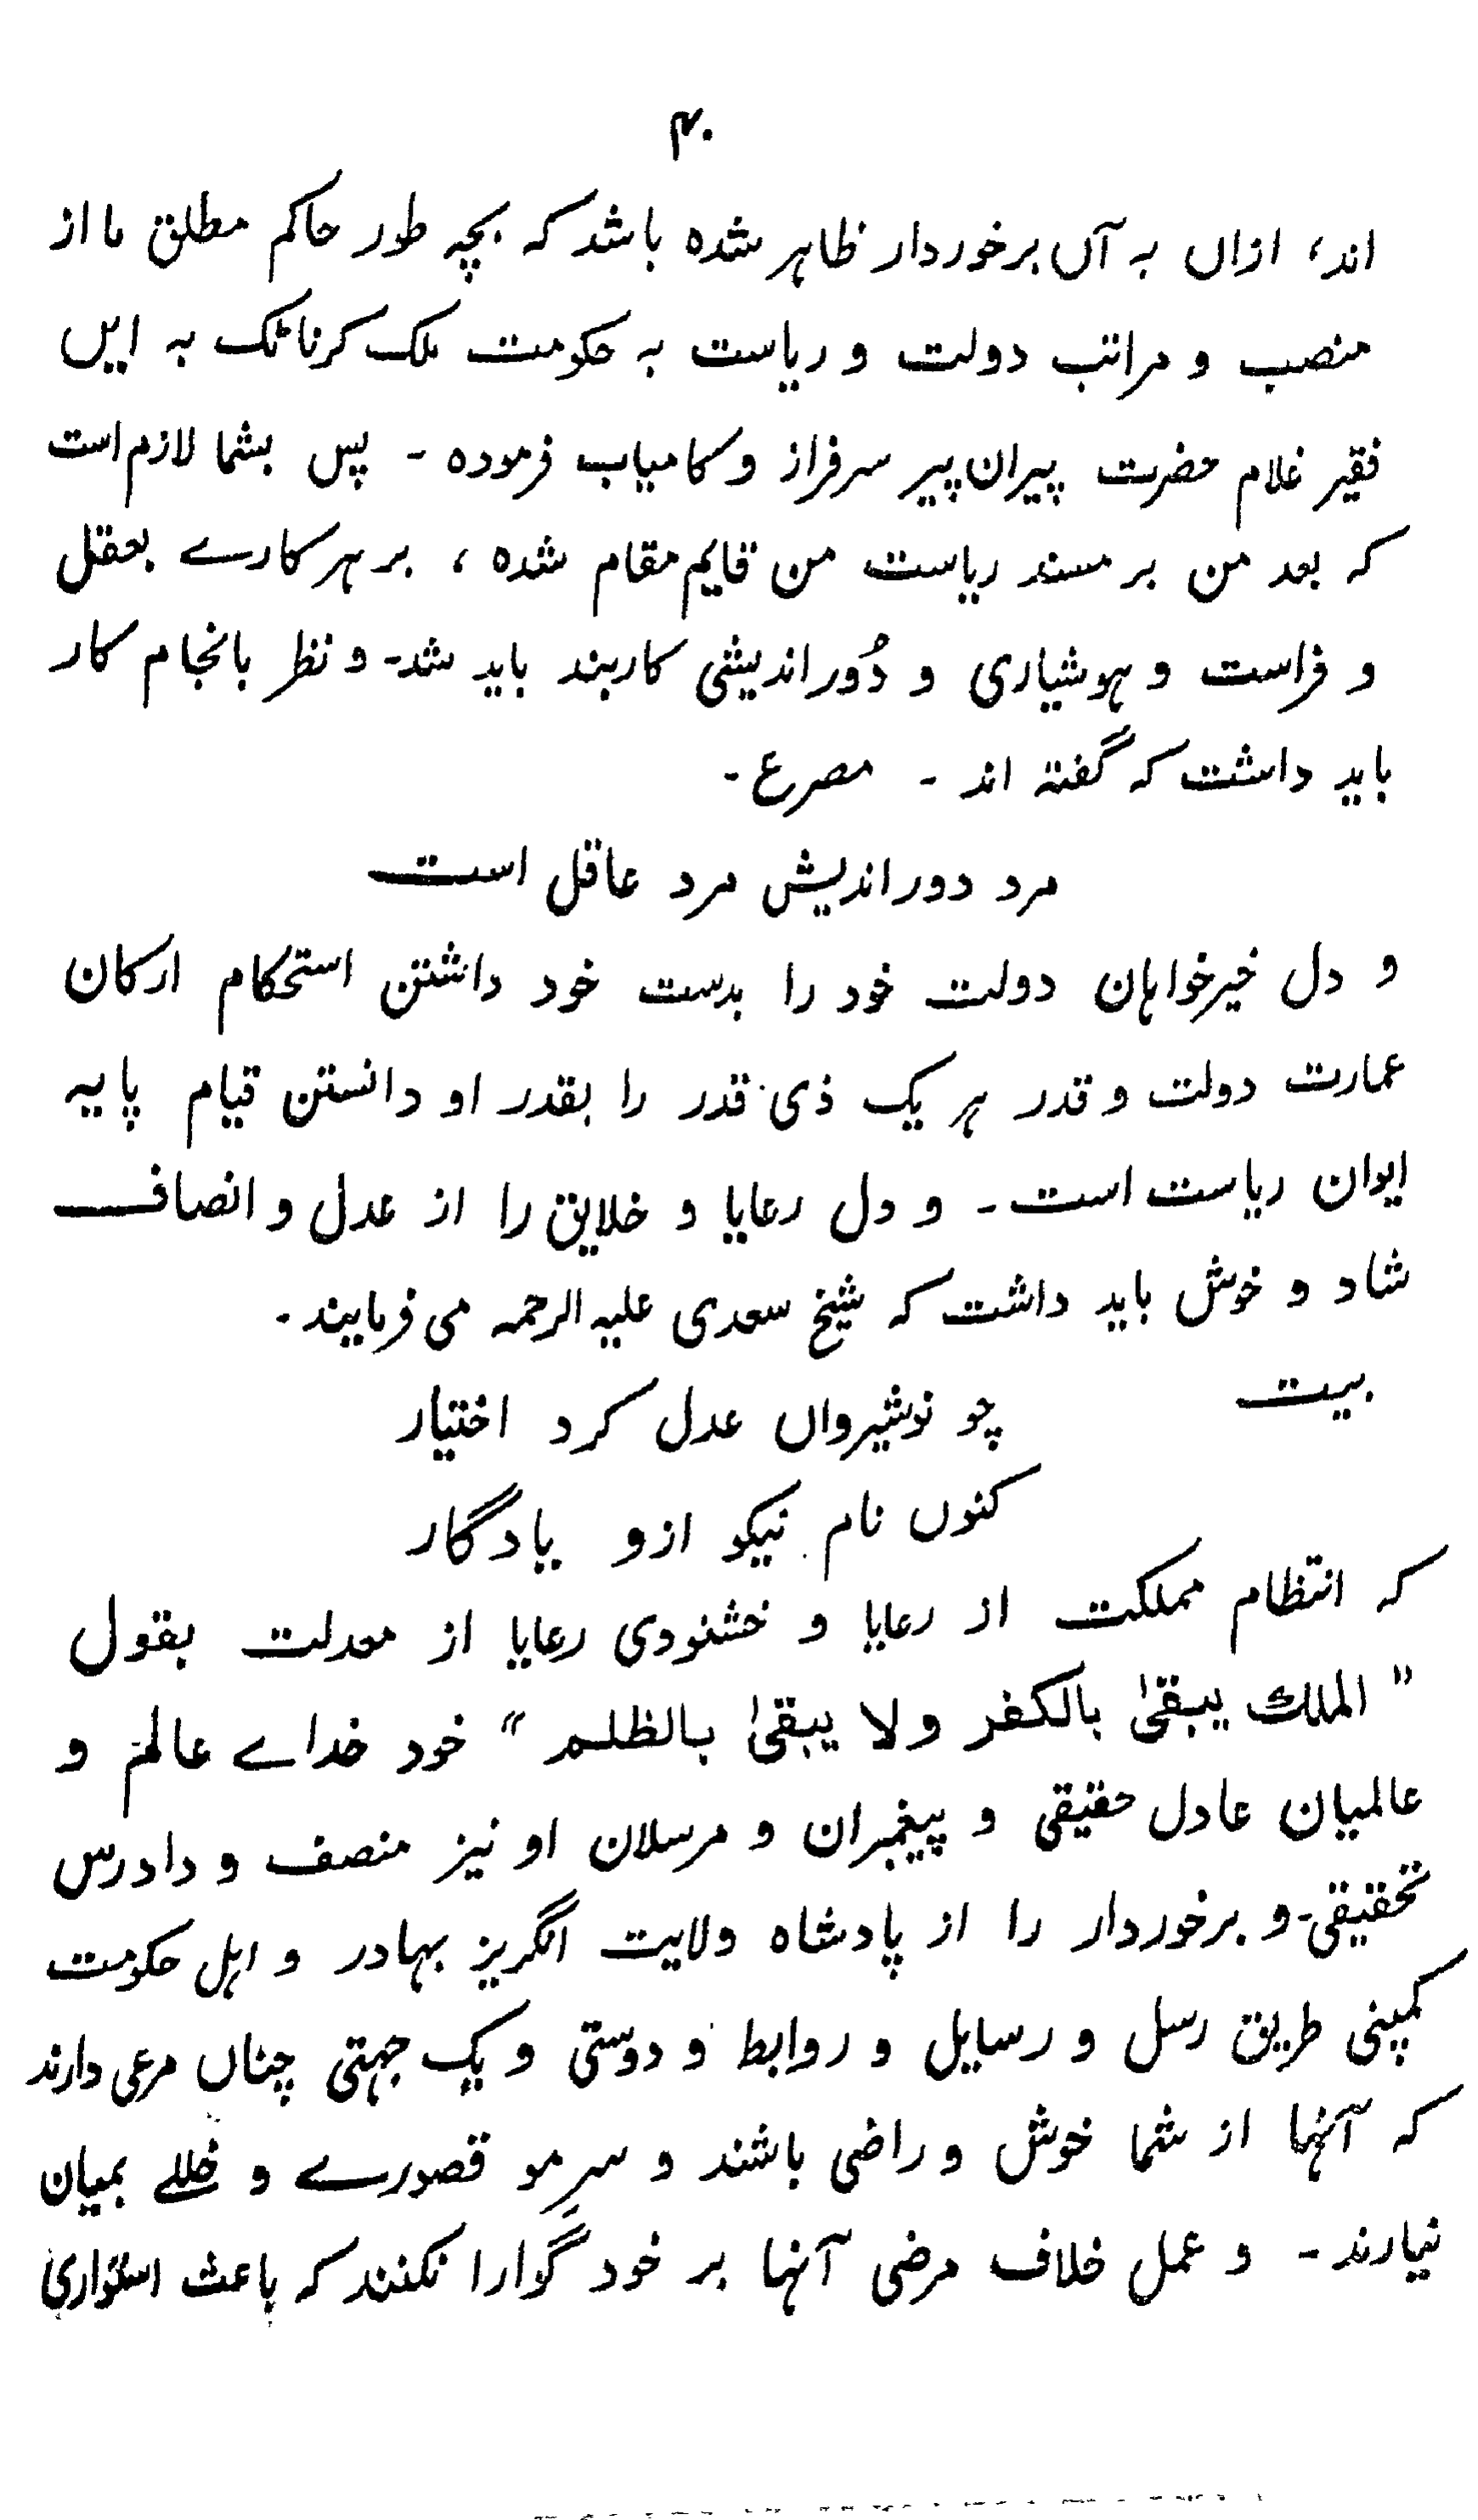 ۴۰
اند، ازاں بہ آں برخوردار ظاہر شدہ باشد کہ بچہ طور حاکم مطلق ما از
منصب و مراتب دولت و ریاست بہ حکومت ملک کرناٹک بہ ایں
فقیر غلام حضرت پیران پیر سرفراز و کامیاب فرمودہ ۔ پس بشما لازم است
کہ بعد من بر مسند ریاست من قایم مقام شدہ ، بر ہر کارے بعقل
و فراست و ہوشیاری و دُور اندیشی کاربند باید شد۔ و نظر بانجام کار
باید داشت کہ گفتہ اند ۔ مصرع ۔
مرد دور اندیش مرد عاقل است
و دل خیرخواہان دولت خود را بدست خود داشتن استحکام ارکان
عمارت دولت و قدر ہر یک ذی قدر را بقدر او دانستن قیام پایہ
ایوان ریاست است ۔ و دل رعایا و خلایق را از عدل و انصاف
شاد و خوش باید داشت کہ شیخ سعدی علیہ الرحمہ می فرمایند ۔
بیت
چو نوشیرواں عدل کرد اختیار
کنوں نام نیکو ازو یادگار
کہ انتظام مملکت از رعایا و خشنودی رعایا از معدلت بقول
" الملك يبقىٰ بالكفر ولا يبقىٰ بالظلم " خود خداے عالم و
عالمیان عادل حقیقی و پیغمبران و مرسلان او نیز منصف و دادرس
تحقیقی۔ و برخوردار را از پادشاہ ولایت انگریز بہادر و اہل حکومت
کمپنی طریق رسل و رسایل و روابط و دوستی و یک جہتی چناں مرعی دارند
کہ آنہا از شما خوش و راضی باشند و سرِ مو قصورے و خللے بمیان
نیارند ۔ و عمل خلاف مرضی آنہا بر خود گوارا نکنند کہ باعث استواری